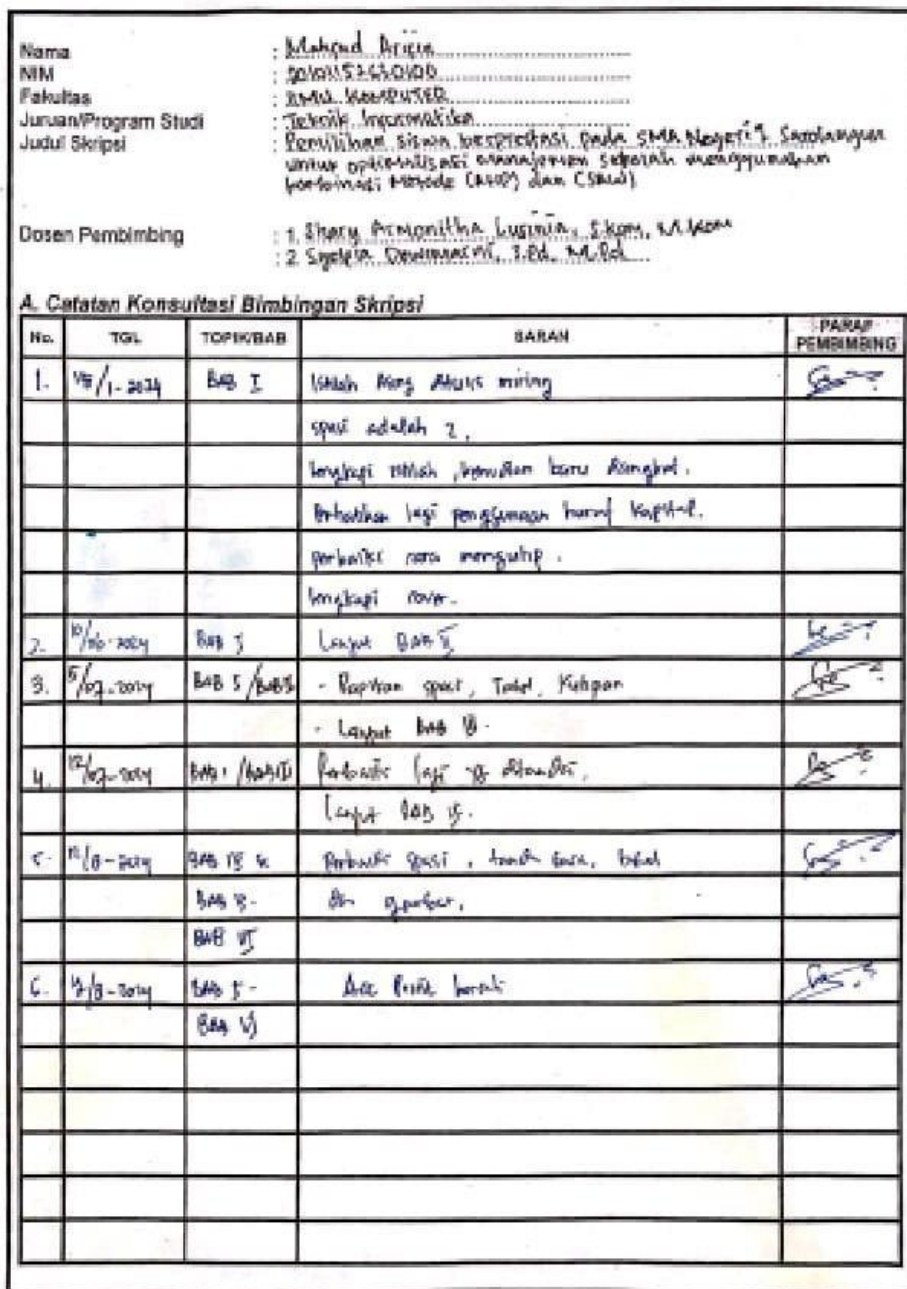 Nama : Mahfud Arifin
NIM
Fakultas : ILMU KOMPUTER
Jurusan/Program Studi : Teknik Informatika
Judul Skripsi : Pemilihan siswa berprestasi pada SMA Negeri 1 Sarolangun
untuk optimalisasi manajemen sekolah menggunakan
kombinasi Metode (AHP) dan (SAW)
Dosen Pembimbing : 1. Shary Armonitha Lusinia, S.Kom, M.Kom
: 2. Dewimarni, S.Pd, M.Pd
A. Catatan Konsultasi Bimbingan Skripsi
No. TGL TOPIK/BAB SARAN PARAF PEMBIMBING
1. /1-2024 BAB I Istilah Asing ditulis miring
spasi adalah 2.
lengkapi istilah, kemudian baru disingkat.
Perhatikan lagi penggunaan huruf kapital.
perbaiki cara mengutip.
lengkapi cover.
2. 10/06-2024 BAB I Lanjut BAB II
3. 5/07-2024 BAB I/BAB II - Rapikan spasi, Tabel, Kutipan
- Lanjut BAB III.
4. 12/07-2024 BAB I/BAB III Perbaiki lagi yg ditandai,
Lanjut BAB IV.
5. /8-2024 BAB IV Perbaiki spasi, tanda baca, tabel
BAB V. dan gambar.
BAB VI
6. /8-2024 BAB I- Acc
BAB VI